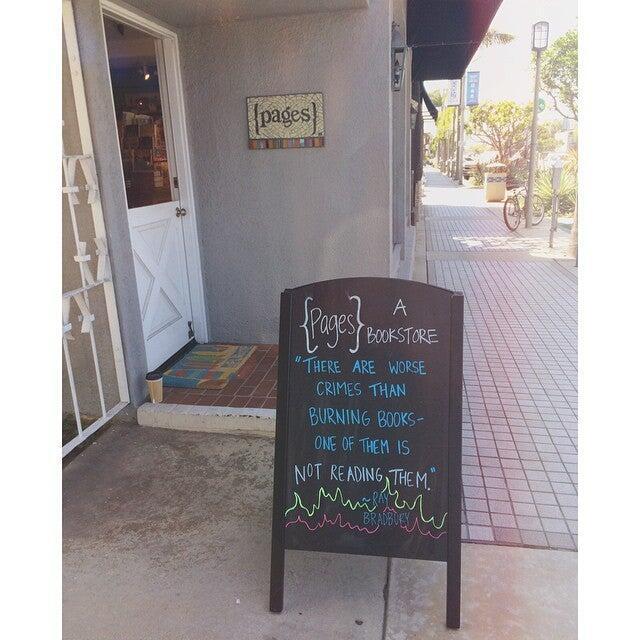 {pages}
{Pages} A
BOOKSTORE
"THERE ARE WORSE
CRIMES THAN
BURNING BOOKS-
ONE OF THEM IS
NOT READING THEM."
~RAY
BRADBURY